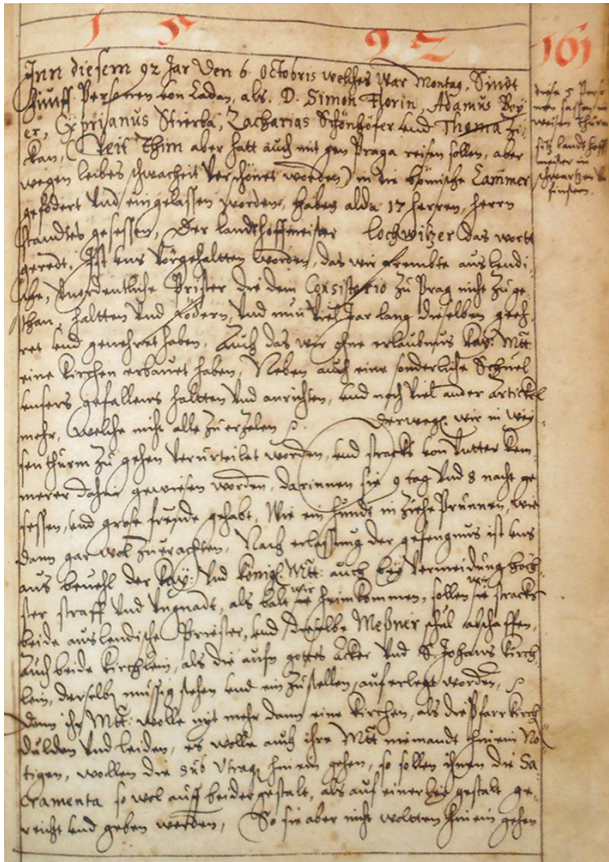 1 5 9 2
161
Inn diesem 92 Jar den 6 Octobris welches war Montag, Sindt
fünff Personen von Cadan, als. D. Simon Florin, Adamus Bey
er, Cyprianus Stierba, Zacharias Schönhöfer und Thomas Zi
kan, (Veit Thim aber hatt auch mit gen Praga reisen sollen, aber
wegen leibes schwacheit verschönet worden) in die Bömische Cammer
gefodert und eingelassen worden, haben alda 17 herren, herrn
standtes gesessen, Der landthoffmeister Lochwitzer das wortt
geredt, Ist uns vorgehaltten worden, das wir frembte auslendi
sche, unordentliche Prister die dem Consistorio zu Prag nicht zuge
than, haltten und födern, und nun viel Jar lang dieselben geeh
ret und genehret haben. Auch das wir ohne erlaubnus Kay: Mtt
eine Kirchen erbauet haben, Neben auch eine sonderliche Schuel
unsers gefallens haltten und anrichten, und noch viel ander artickel
mehr, welche nicht alle zu erzalen Derweg. wir in wei
sen thurm zu gehen verurteilet worden, und stracks von unter kem
merer dahin gewiesen worden, darinnen sie 9 tag und 8 nacht ge
sessen, und grose freude gehabt, wie ein hundt in Ziehe Brunnen, wie
dann gar wol zu erachten, Nach erlassung der gefengnus ist uns
aus bevehl der Kay: und Königl: Mtt: auch bey vermeidung höch
ster straff und ungnadt, als bald wir heimkommen, sollen wir stracks
beide auslendische Priester, und dieselbe Meßner schul abschaffen,
Auch beide Kirchlein, als die aufm gottes acker und S. Johans Kirch
lein, derselben müssig stehen und ein zustellen, auferleget worden,
dann ihr Mtt: wolle nit mehr dann eine Kirchen, als die Pfarrkirch
dulden und leiden, es wolle auch ihre Mtt niemandt hinein No
tigen, wollen die sub utraq hinein gehen, so sollen ihnen die Sa
cramenta so wol auff beider gestalt, als auf einerley gestalt ge
reicht und geben werden, So sie aber nicht woltten hinein gehen
diese 5 Perso
nen sassen im
weissen Thurm
landthoff
meister in
schwartzen